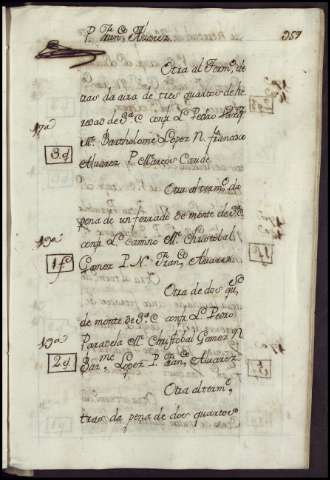 P. Franco Alvarez
357
Otra al Termo de
tras da aira de tres quartos de he
redad de 3ª C confa Lte Pedro
17ª
Mte Bartholome Lopez N. francisco
3.q
Alvarez P. Marcos Canal
Otra al termo da
pena de un ferrado de monte de 3ª
C
confa Lte Camino Mte Christobal
1.f
Gomez P. N. Franco Alvarez
Otra de dos qtos
de monte de 3ª C confa Lte Pedro
Mte Christobal Gomez N
2.q
Barme Lopez P. Franco Alvarez
Otra al termo
tras da pena de dos quartos